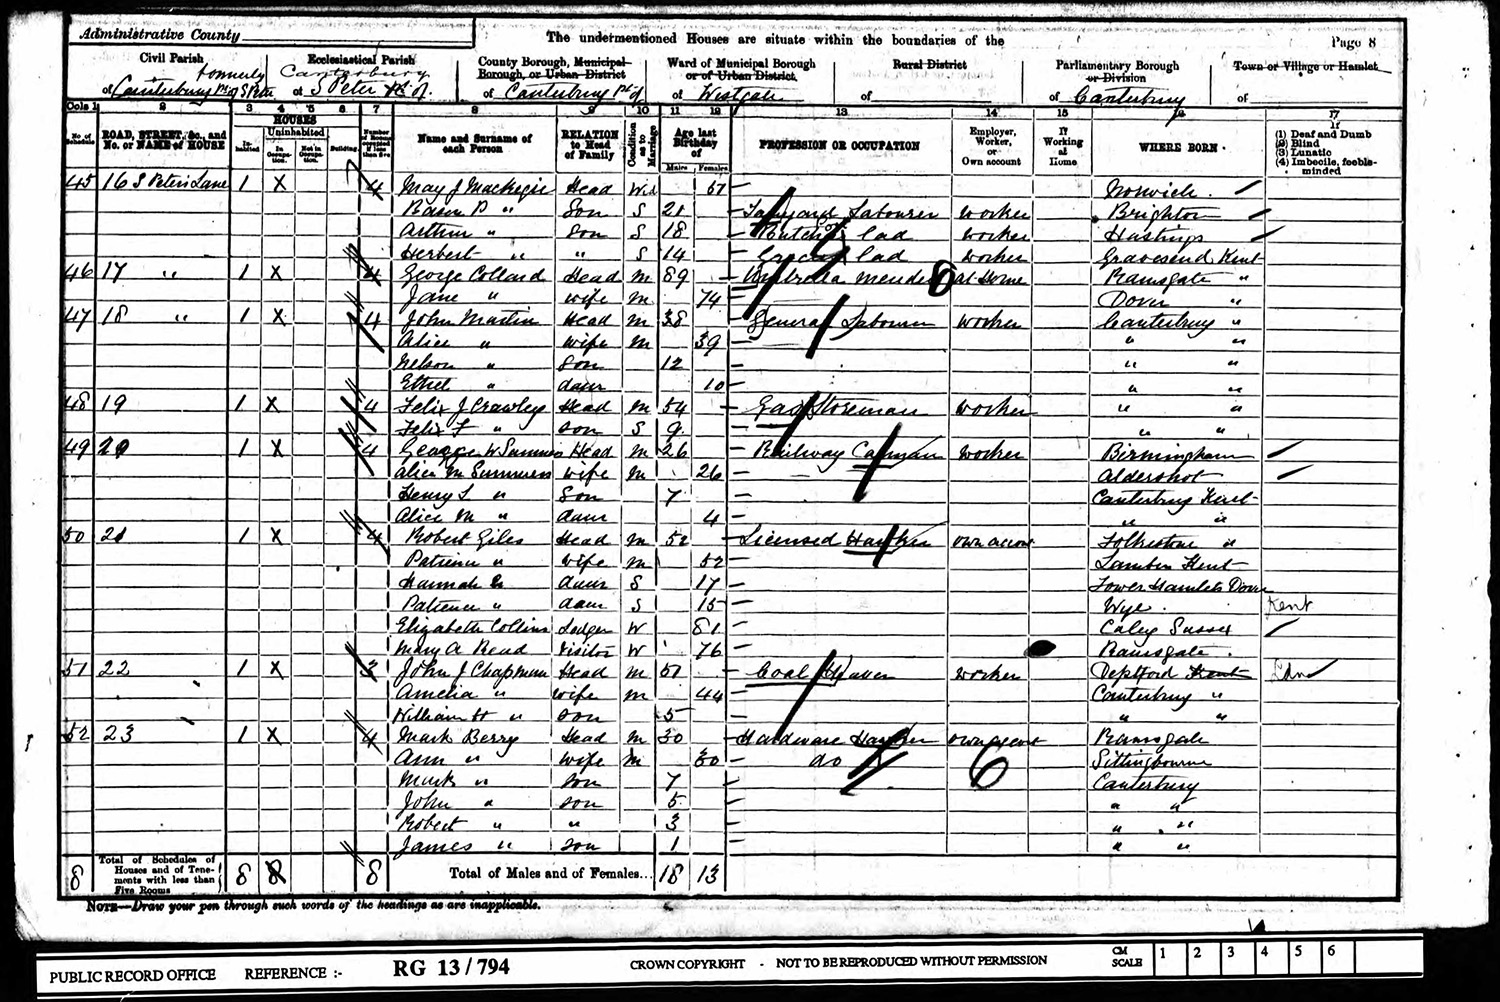 Administrative County
The undermentioned Houses are situate within the boundaries of the
Page 8
Civil Parish
Ecclesiastical Parish
County Borough, Municipal Borough, or Urban District
Ward of Municipal Borough or of Urban District
Rural District
Parliamentary Borough or Division
Town or Village or Hamlet
formerly
of Canterbury Pt of S Peter
Canterbury
of S Peter Pt of
of Canterbury Pt of
of Westgate
of
of Canterbury
of
Cols 1 2 3 4 5 6 7 8 9 10 11 12 13 14 15 16 17
HOUSES
No. of Schedule
ROAD, STREET, &c., and No. or NAME of HOUSE
Inhabited
Uninhabited
In Occupation.
Not in Occupation.
Building.
Number of Rooms occupied if less than five
Name and Surname of each Person
RELATION to Head of Family
Condition as to Marriage
Age last Birthday of
Males Females
PROFESSION OR OCCUPATION
Employer, Worker, or Own account
If Working at Home
WHERE BORN
If
(1) Deaf and Dumb
(2) Blind
(3) Lunatic
(4) Imbecile, feeble-minded
45 16 S Peters Lane 1 X 4 May J Head Wid 57 — Norwich
" Son S 21 Tanyard Labourer worker Brighton
Arthur " son S 18 — lad worker Hastings
Herbert " " S 14 Grocers lad worker Gravesend Kent
46 17 " 1 X 4 George Collard Head M 89 Umbrella Mender at Home Ramsgate "
Jane " wife M 74 — Dover "
47 18 " 1 X 4 John Martin Head M 38 General Labourer worker Canterbury "
Alice " wife M 39 — " "
Nelson " son 12 — " "
Ethel " daur 10 — " "
48 19 1 X 4 Felix J Crawley Head M 54 Gas Storeman worker " "
Felix F " son S 9 — " "
49 20 1 X 4 George W Summers Head M 26 Railway Carman worker Birmingham
Alice M Summers wife M 26 — Aldershot
Henry L " Son 7 — Canterbury Kent
Alice M " daur 4 — " "
50 21 1 X 4 Robert Giles Head M 52 Licensed Hawker own account Folkestone "
Patience " wife M 52 — Kent
Hannah " daur S 17 — Tower Hamlets Dover
Patience " daur S 15 — Wye Kent
Elizabeth Collins Lodger W 81 — Sussex
Mary A Read Visitor W 76 — Ramsgate
51 22 1 X 3 John J Chapman Head M 51 Coal Heaver worker Deptford Kent
Amelia " wife M 44 — Canterbury "
William H " son 5 — " "
52 23 1 X 4 Mark Berry Head M 30 Hardware Hawker own account Ramsgate
Ann " wife M 30 do 6 Sittingbourne
Mark " son 7 — Canterbury
John " son 5 — " "
Robert " " 3 — " "
James " son 1 — " "
8 Total of Schedules of Houses and of Tenements with less than Five Rooms 8 8 8 Total of Males and of Females... 18 13
NOTE—Draw your pen through such words of the headings as are inapplicable.
PUBLIC RECORD OFFICE REFERENCE :- RG 13/794 CROWN COPYRIGHT - NOT TO BE REPRODUCED WITHOUT PERMISSION CM SCALE 1 2 3 4 5 6